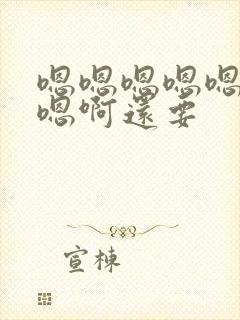 嗯嗯嗯嗯嗯
嗯啊還要
宣棟